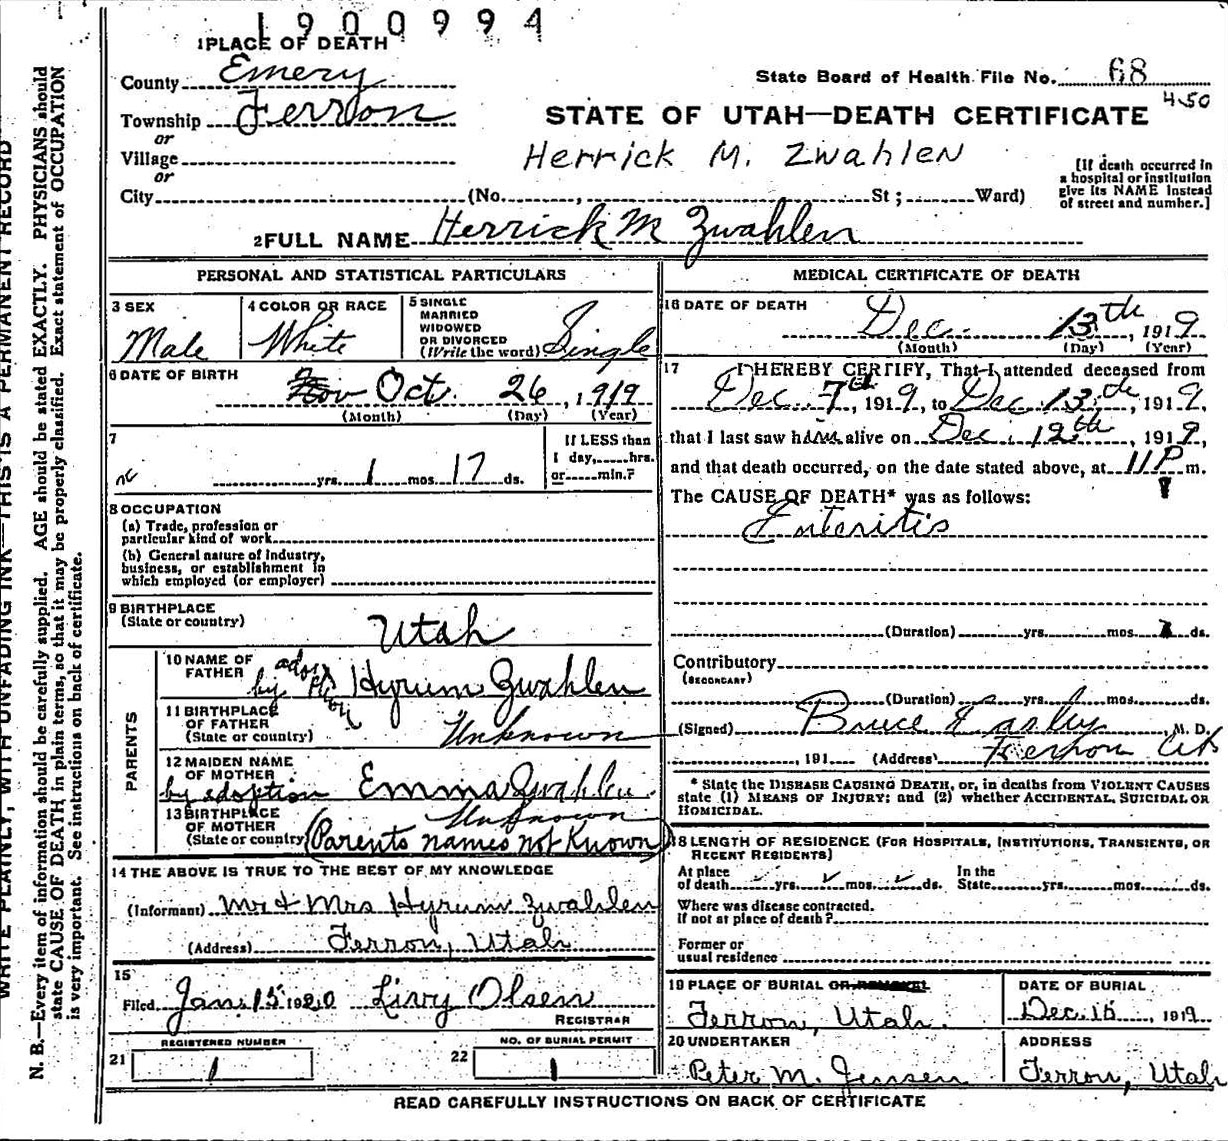 1900994
1 PLACE OF DEATH
County Emery
State Board of Health File No. 68
Township Ferron
4-50
STATE OF UTAH—DEATH CERTIFICATE
or
Village
Herrick M. Zwahlen
or
[If death occurred in a hospital or institution give its NAME instead of street and number.]
City (No. , St ; Ward)
2 FULL NAME Herrick M Zwahlen
PERSONAL AND STATISTICAL PARTICULARS
3 SEX Male
4 COLOR OR RACE White
5 SINGLE MARRIED WIDOWED OR DIVORCED (Write the word) Single
6 DATE OF BIRTH
Nov Oct. 26, 1919
(Month) (Day) (Year)
7
yrs. 1 mos. 17 ds.
If LESS than 1 day, hrs. or min.?
8 OCCUPATION
(a) Trade, profession or
particular kind of work
(b) General nature of Industry,
business, or establishment in
which employed (or employer)
9 BIRTHPLACE
(State or country) Utah
PARENTS
10 NAME OF FATHER by adoption Hyrum Zwahlen
11 BIRTHPLACE OF FATHER (State or country) Unknown
12 MAIDEN NAME OF MOTHER by adoption Emma Zwahlen
13 BIRTHPLACE OF MOTHER (State or country) Unknown
(Parents names not Known)
14 THE ABOVE IS TRUE TO THE BEST OF MY KNOWLEDGE
(Informant) Mr & Mrs Hyrum Zwahlen
(Address) Ferron, Utah
15
Filed Jan. 15 1920 Livy Olsen
REGISTRAR
21 REGISTERED NUMBER 1
22 NO. OF BURIAL PERMIT 1
MEDICAL CERTIFICATE OF DEATH
16 DATE OF DEATH
Dec. 13th, 1919
(Month) (Day) (Year)
17 I HEREBY CERTIFY, That I attended deceased from
Dec. 7th, 1919, to Dec 13th, 1919,
that I last saw him alive on Dec. 12th, 1919,
and that death occurred, on the date stated above, at 11 P m.
The CAUSE OF DEATH* was as follows:
Enteritis
(Duration) yrs. mos. 7 ds.
Contributory
(SECONDARY)
(Duration) yrs. mos. ds.
(Signed) Bruce Easley, M. D.
, 191 (Address) Ferron
* State the DISEASE CAUSING DEATH, or, in deaths from VIOLENT CAUSES
state (1) MEANS OF INJURY; and (2) whether ACCIDENTAL, SUICIDAL OR
HOMICIDAL.
18 LENGTH OF RESIDENCE (FOR HOSPITALS, INSTITUTIONS, TRANSIENTS, OR
RECENT RESIDENTS)
At place of death yrs. mos. ds. In the State yrs. mos. ds.
Where was disease contracted,
if not at place of death?
Former or
usual residence
19 PLACE OF BURIAL OR REMOVAL
Ferron, Utah.
DATE OF BURIAL
Dec. 15, 1919
20 UNDERTAKER
Peter M. Jensen
ADDRESS
Ferron, Utah
READ CAREFULLY INSTRUCTIONS ON BACK OF CERTIFICATE
WRITE PLAINLY, WITH UNFADING INK—THIS IS A PERMANENT RECORD
N. B.—Every item of information should be carefully supplied. AGE should be stated EXACTLY. PHYSICIANS should
state CAUSE OF DEATH in plain terms, so that it may be properly classified. Exact statement of OCCUPATION
is very important. See instructions on back of certificate.